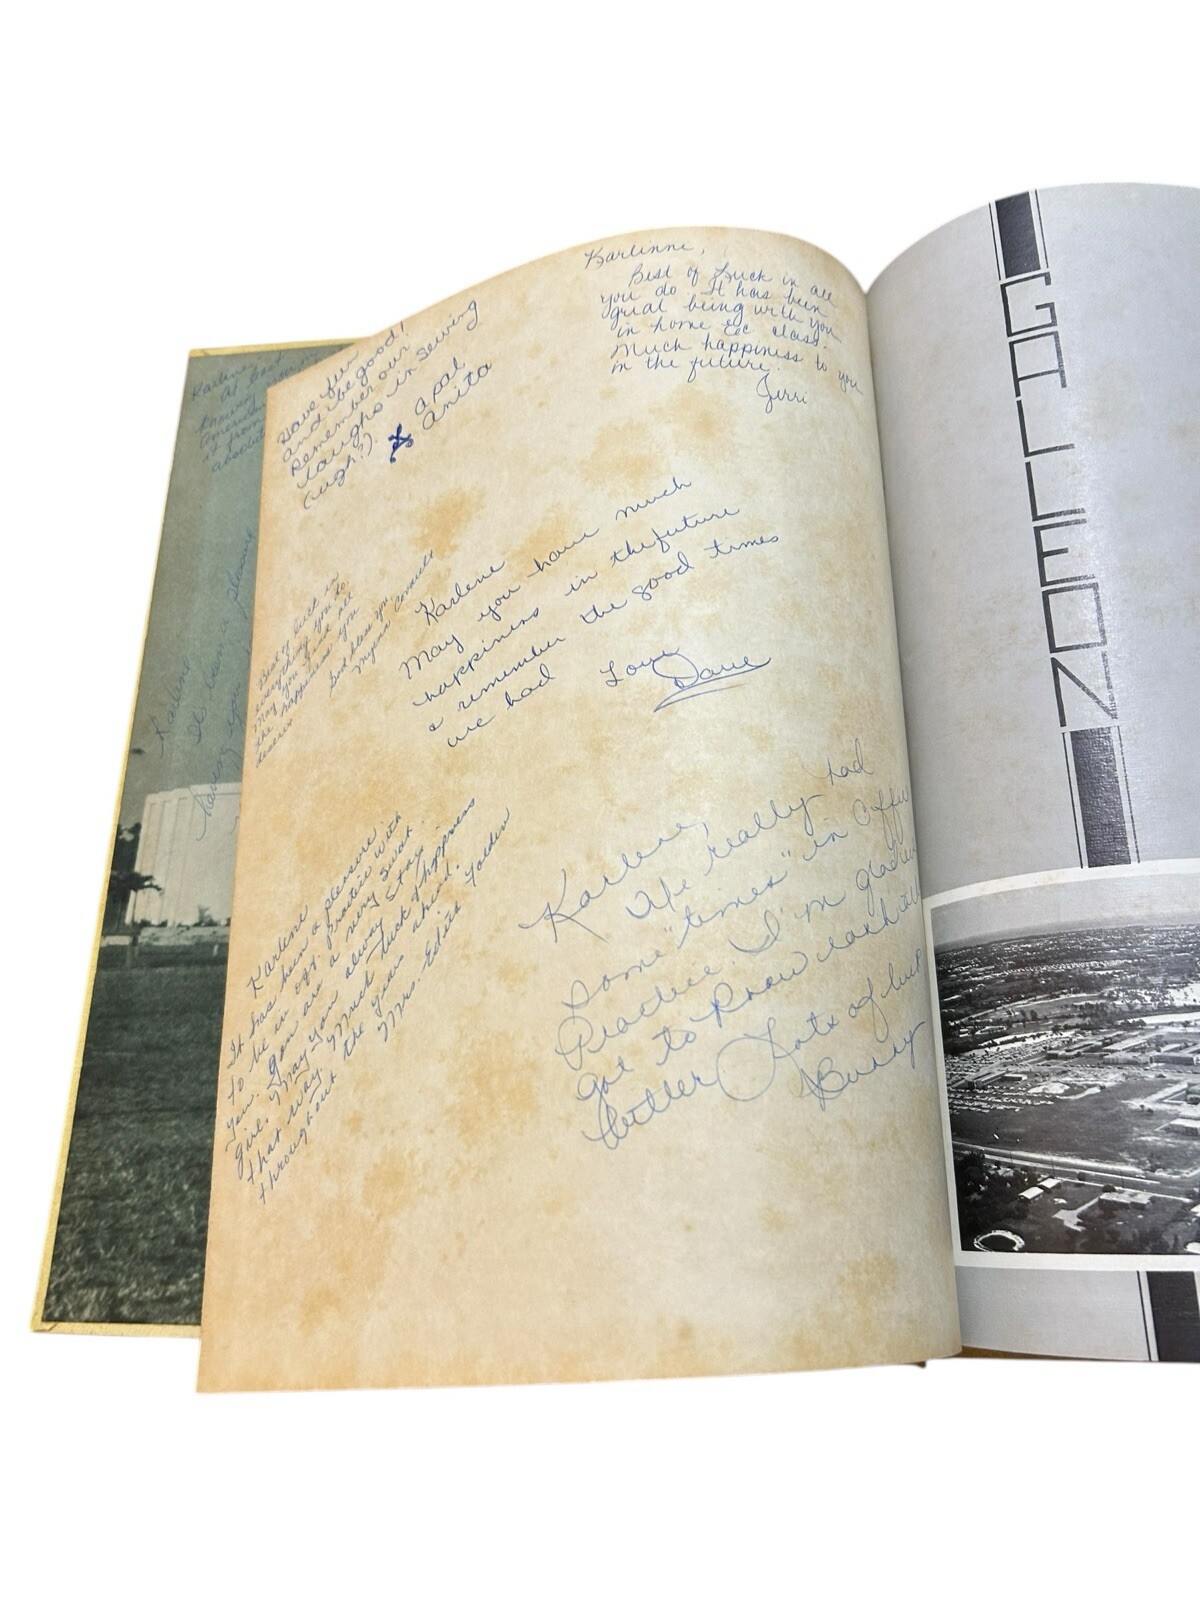 Karlene
Karlene
It's been a pleasure
Have fun
and be good!
Remember our
laughs in sewing
(ugh!).
a pal
Anita
Karlinne,
Best of Luck in all
you do. It has been
great being with you
in home Ecc class.
Much happiness to you
in the future.
Jerri
Best of luck in
everything you do.
May you find all
the happiness you
deserve
God bless you,
Karlene
May you have much
happiness in the future
& remember the good times
we had
Love
Dave
Karlene
It has been a pleasure
to be in off. Practice with
you. You are a very sweet
girl. May you always stay
that way. Much luck & happiness
throughout the years ahead.
Mrs. Edith Tolden
Karlene,
We really had
some "times" in Office
Practice. I'm glad we
got to know each other
better. Lots of luck
GALLEON